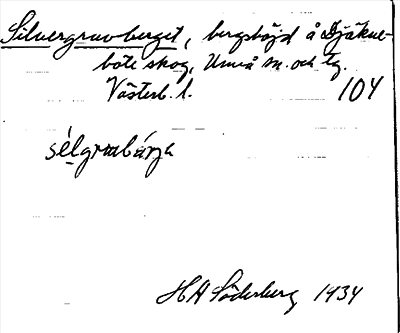 Silvergruvberget, bergshöjd å Djäkne-
böle skog, Umeå sn. och tg.
Västerb. l. 104
sélgruubárja
H A Söderberg 1934